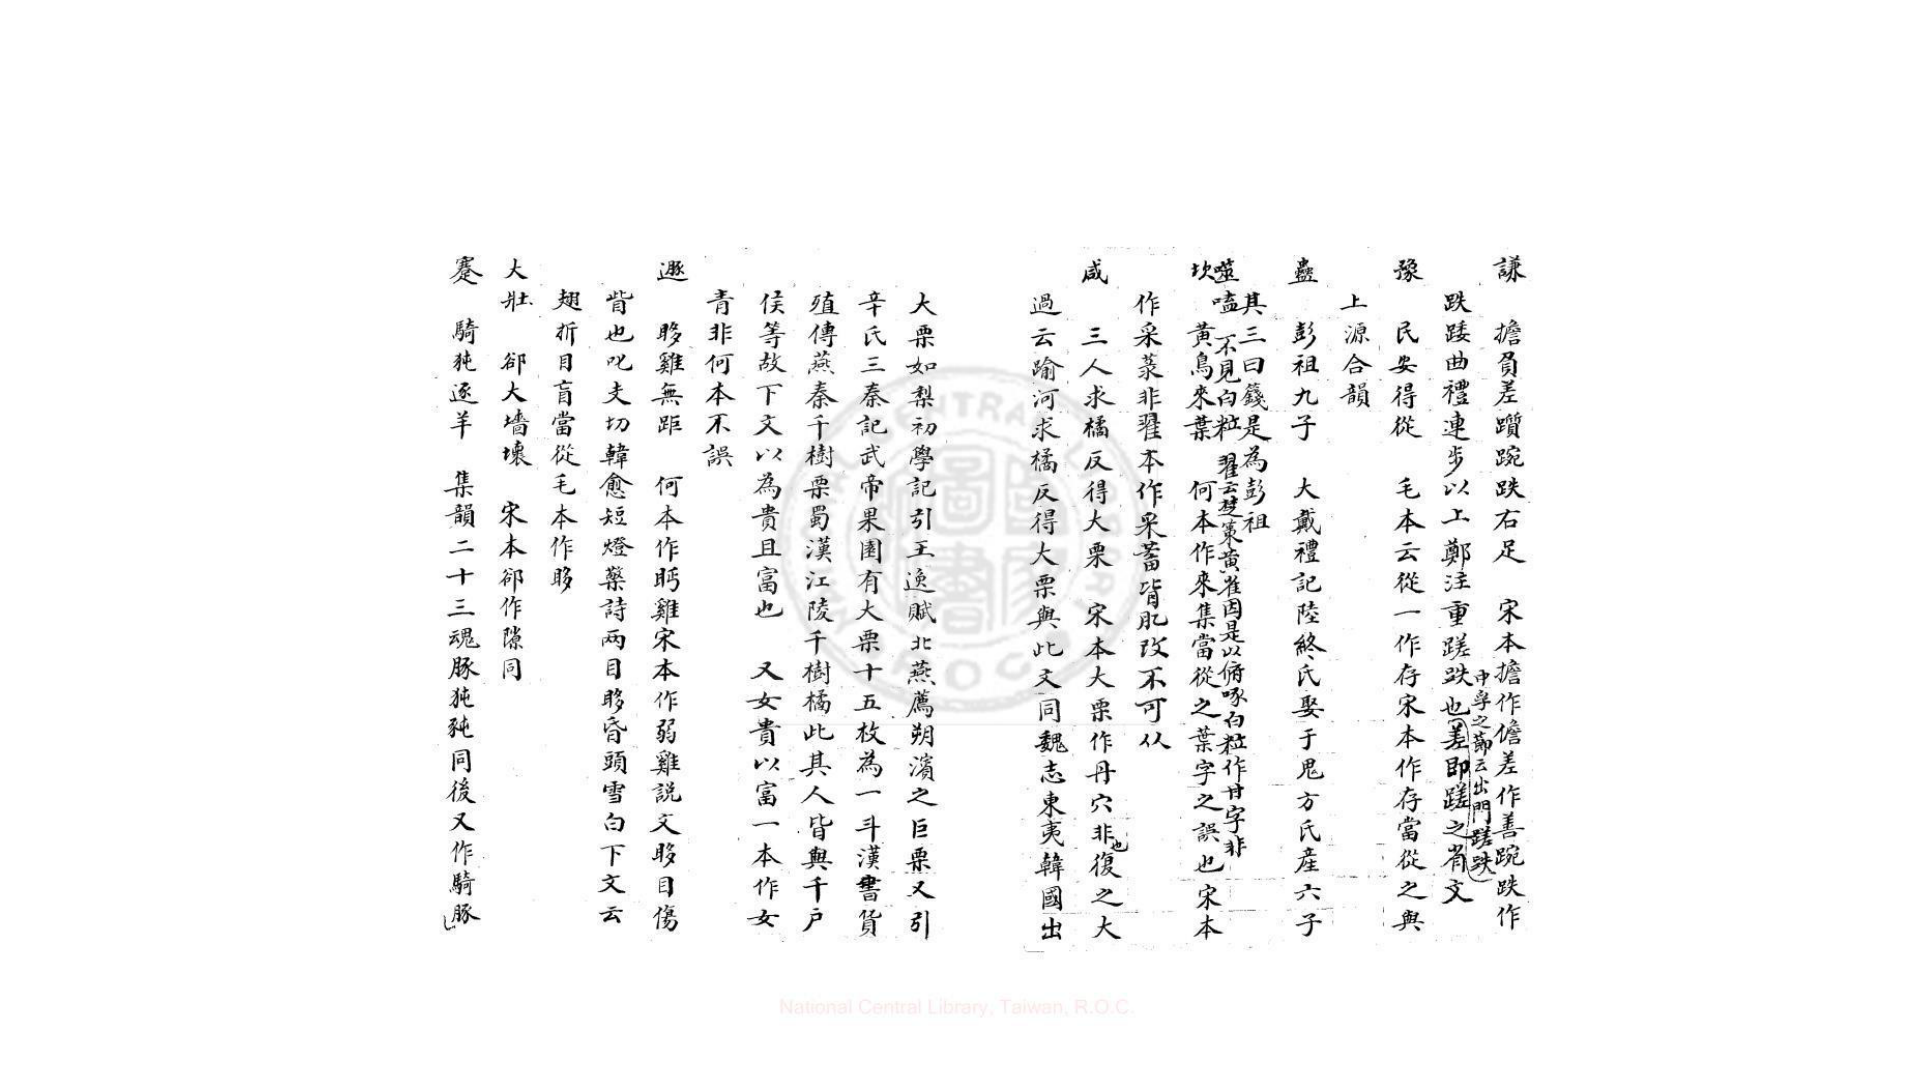 謙　擔負差躓踠跌右足　宋本擔作儋差作善踠跌作
跌踒曲禮連步以上鄭注重蹉跌也差即蹉之省文
中孚之節云出門蹉跌
豫　民安得從　毛本云從一作存宋本作存當從之與
上源合韻
蠱　彭祖九子　大戴禮記陸終氏娶于鬼方氏產六子
其三曰籛是為彭祖
噬嗑　不見白粒　翟云楚策黃雀因是以俯啄白粒作甘字非
坎　黃鳥來葉　何本作來集當從之葉字之誤也宋本
作采菜非翟本作采蓄皆肊改不可从
咸　三人求橘反得大栗　宋本大栗作丹穴非也復之大
過云踰河求橘反得大栗與此文同魏志東夷韓國出
大栗如梨初學記引王逸賦北燕薦朔濱之巨栗又引
辛氏三秦記武帝果園有大栗十五枚為一斗漢書貨
殖傳燕秦千樹栗蜀漢江陵千樹橘此其人皆與千戶
侯等故下文以為貴且富也　又女貴以富一本作女
青非何本不誤
遯　眵雞無距　何本作眄雞宋本作弱雞說文眵目傷
眥也叱支切韓愈短燈檠詩兩目眵昏頭雪白下文云
翅折目盲當從毛本作眵
大壯　郤大墻壞　宋本郤作隙同
蹇　騎㹠逐羊　集韻二十三魂豚㹠豘同後又作騎豚
National Central Library, Taiwan, R.O.C.